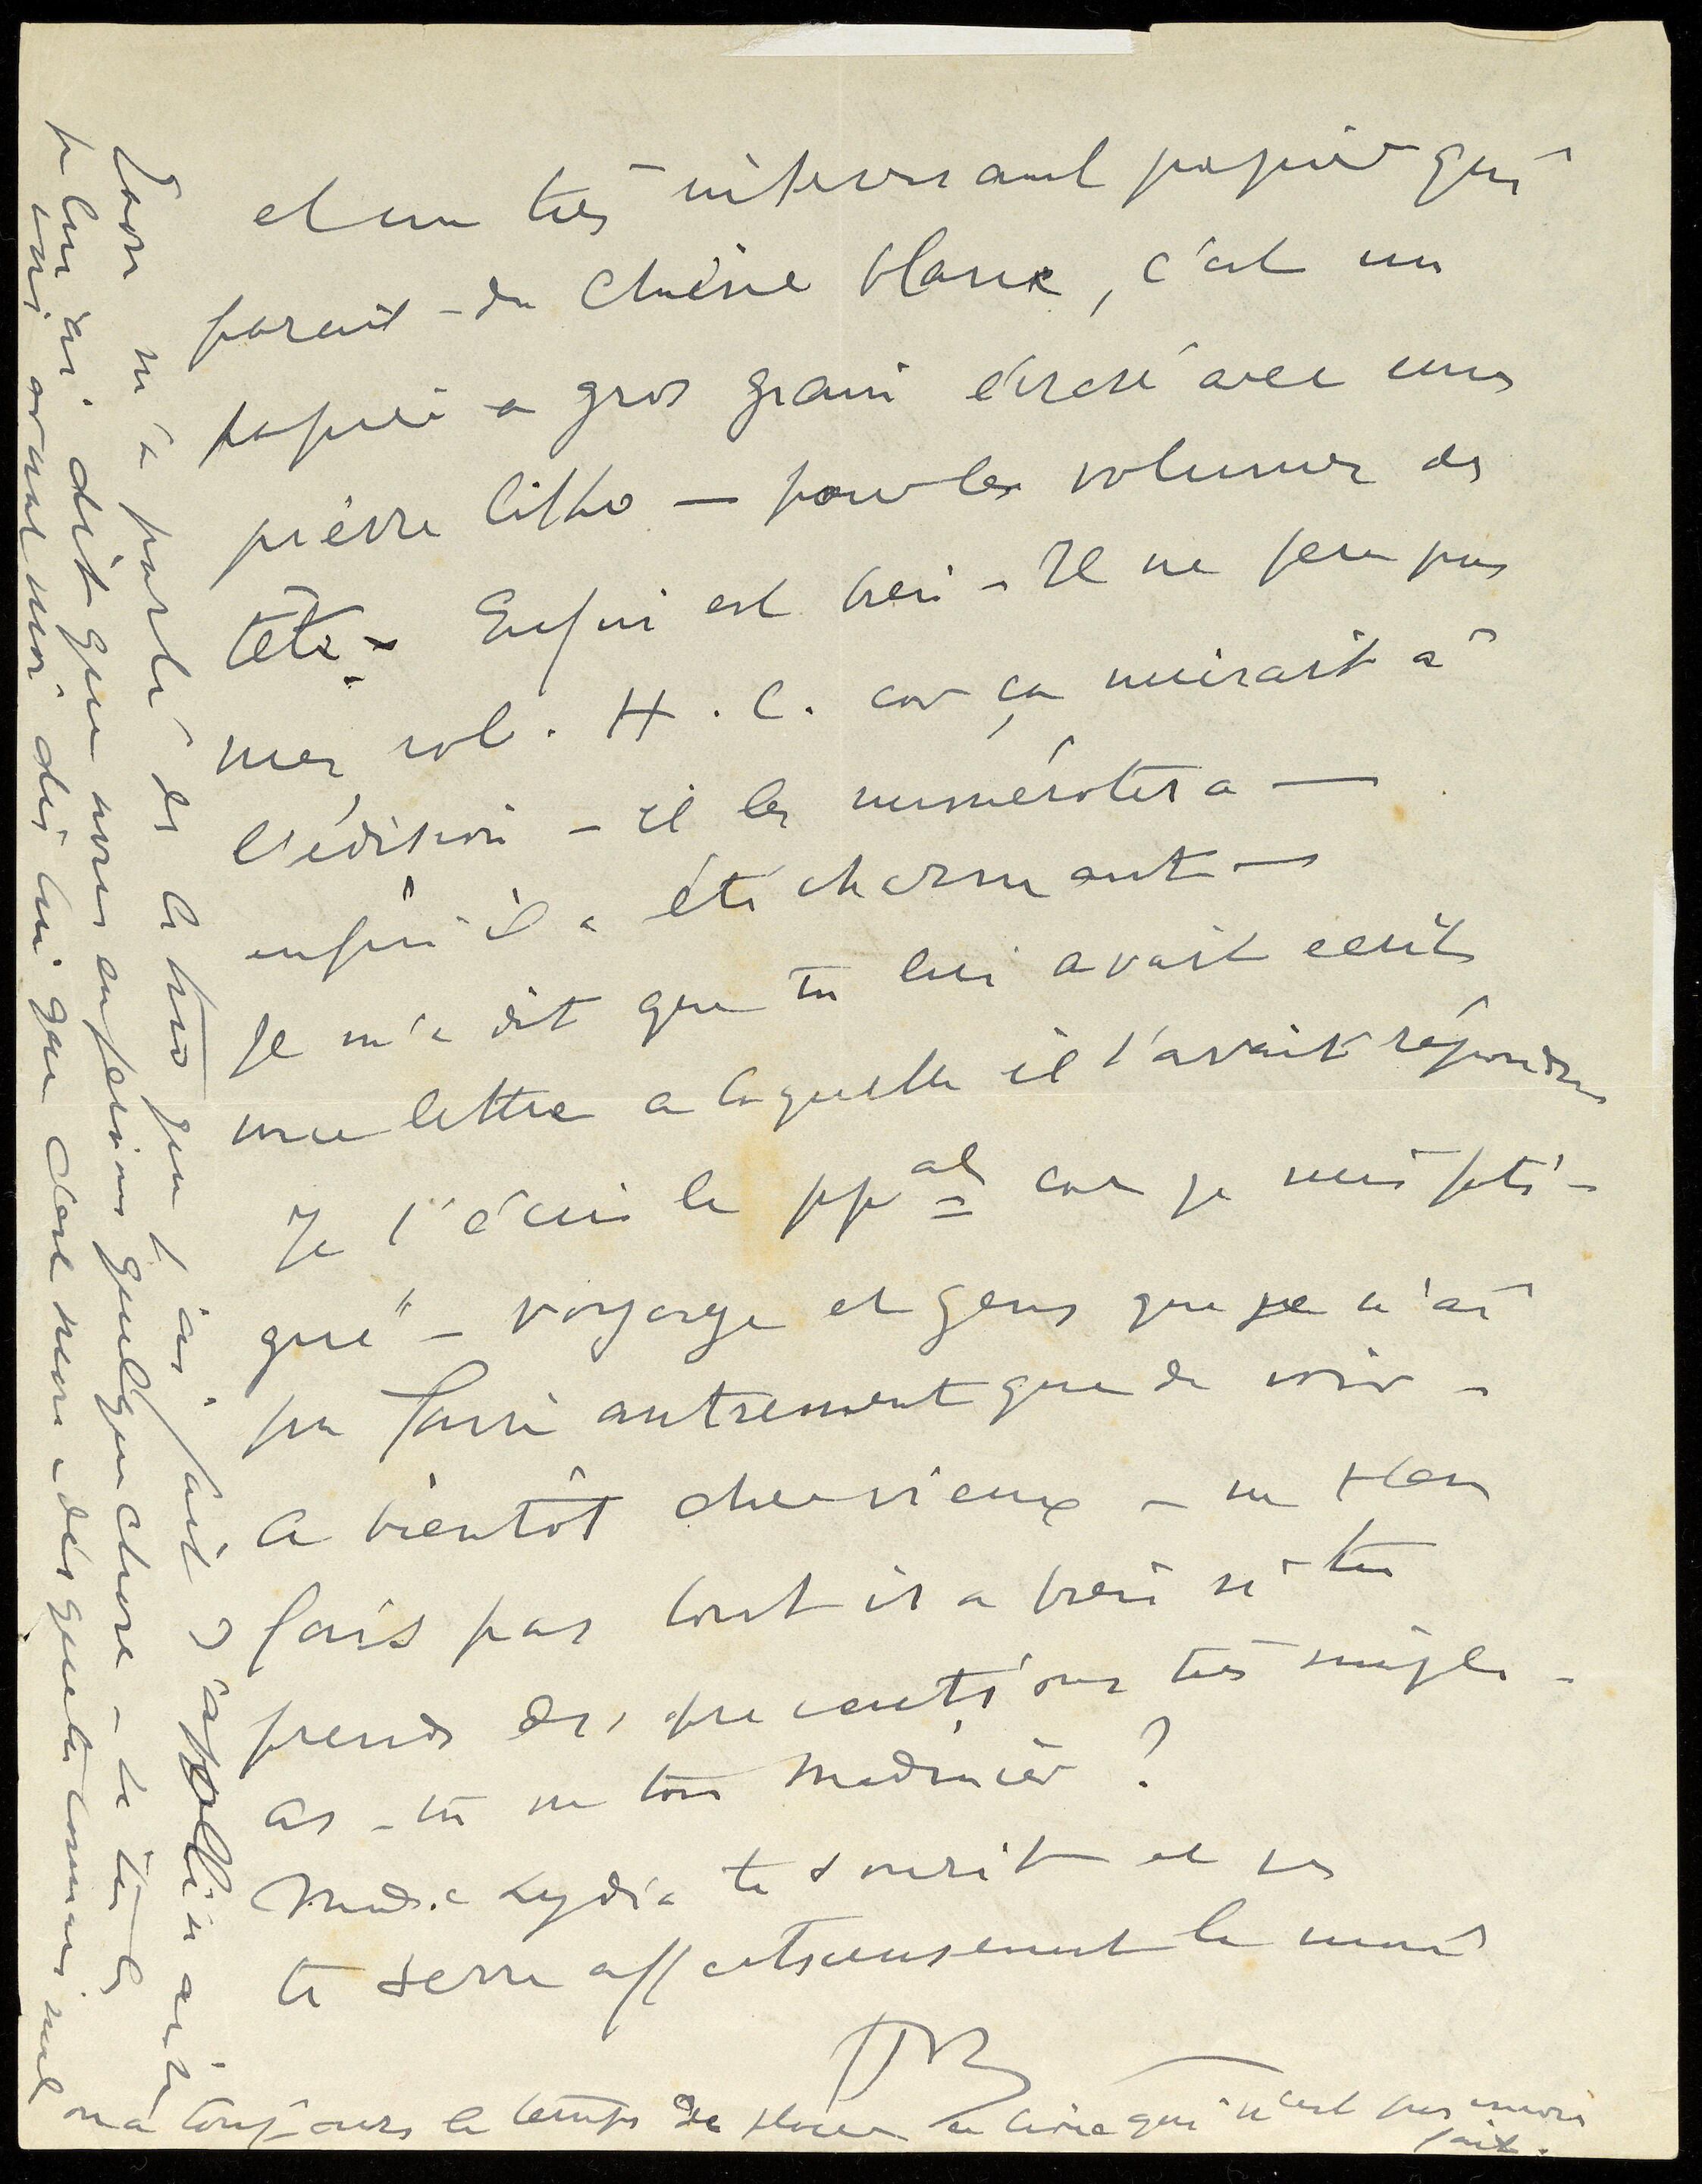 et un très intéressant papier qui
parait - du Chêne blanc, c'est un
papier a gros grain écrasé avec une
pierre litho — pour les volumes de
tête - Enfin est bien - Il ne fera pas
mes vol. H.C. car ça nuirait à
l'édition - il les numérotera —
enfin il a été charmant —
Il m'a dit que tu lui avait écrit
une lettre a laquelle il t'avait répondu
Je t'écris le ppal car je suis fati-
gué - voyage et gens que je n'ai
pu faire autrement que de voir -
a bientôt cher vieux - ne t'en
fais pas tout ira bien si tu
prends des précautions très simples -
as-tu vu ton
Made Lydia te sourit et je
te serre affectueusement la main
HM
Zon m'a parlé de la litho que j'ai fait d'Apollinaire
je lui ai dit que nous en ferions quelque chose -
mais avant moi dis lui que c'est pour
on a toujours le temps de placer un livre qui n'est pas encore
fait.